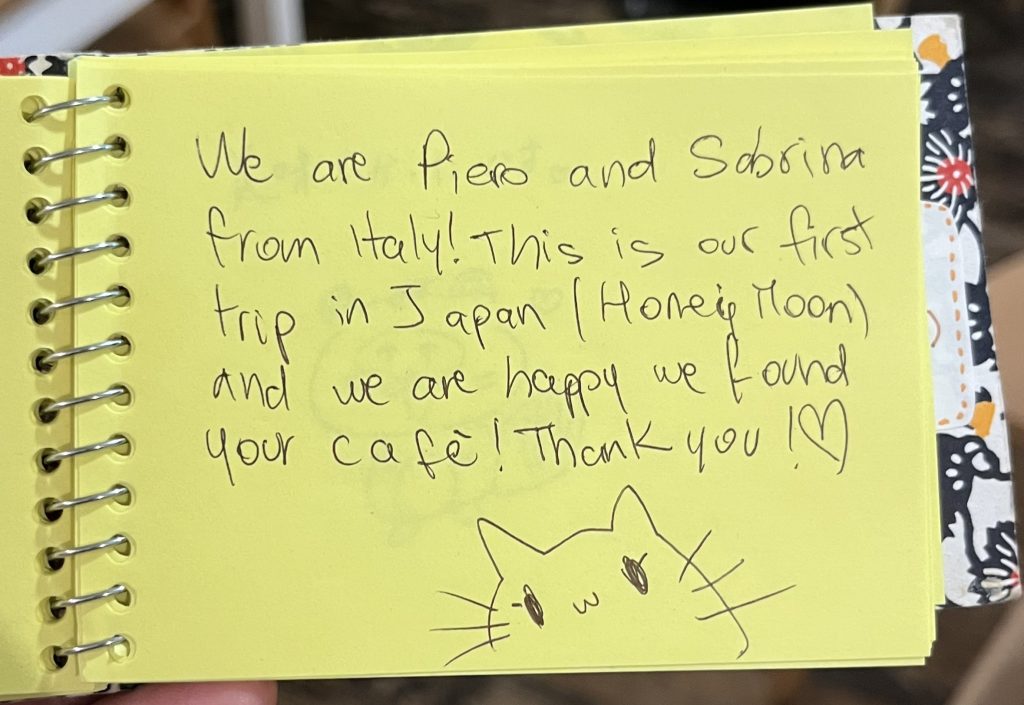 We are Piero and Sabrina
from Italy! This is our first
trip in Japan (Honey Moon)
and we are happy we found
your cafè! Thank you!♡